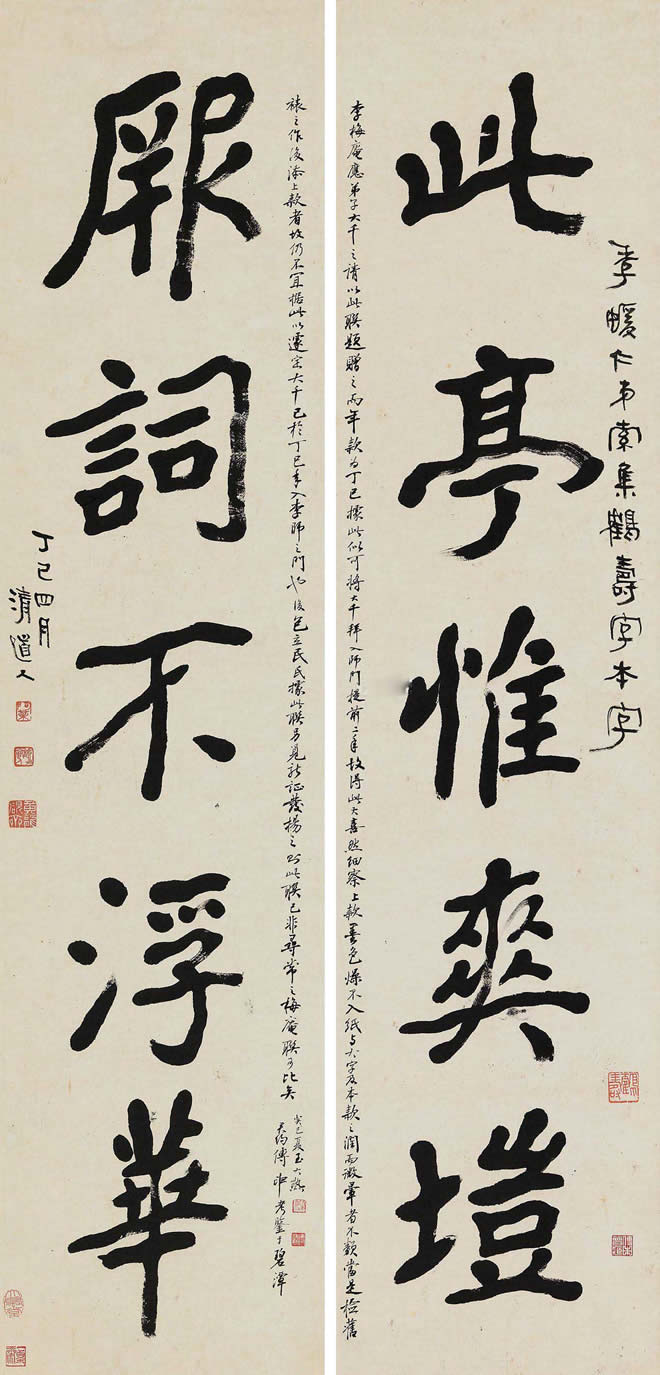 季暖仁弟索集鶴壽字本字
此亭惟爽塏
李梅庵應弟子大千之請以此聯題贈之而年款為丁巳據此似可將大千拜入師門提前二年故得此大喜然細察上款墨色燥不入紙与大字及本款之潤而微暈者不類當是檢舊
裱之作後添上款者故仍不宜據此以遽定大千已於丁巳年入李師之門也後包立民氏據此聯另覓新證發揚之則此聯已非尋常之梅庵聯可比矣
癸巳夏至大熱
君約傅申考鑒于碧潭
厥詞不浮華
丁巳四月
清道人